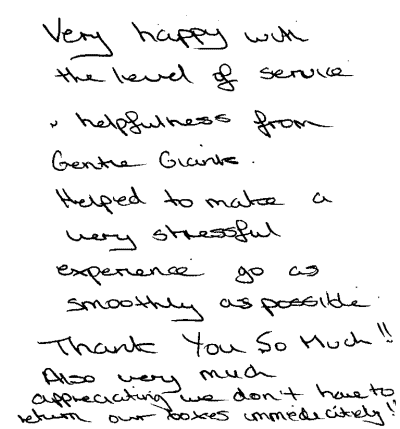 Very happy with
the level of service
& helpfulness from
Gentle Giants.
Helped to make a
very stressful
experience go as
smoothly as possible.
Thank You So Much!!
Also very much
appreciating we don't have to
return our boxes immediately!!